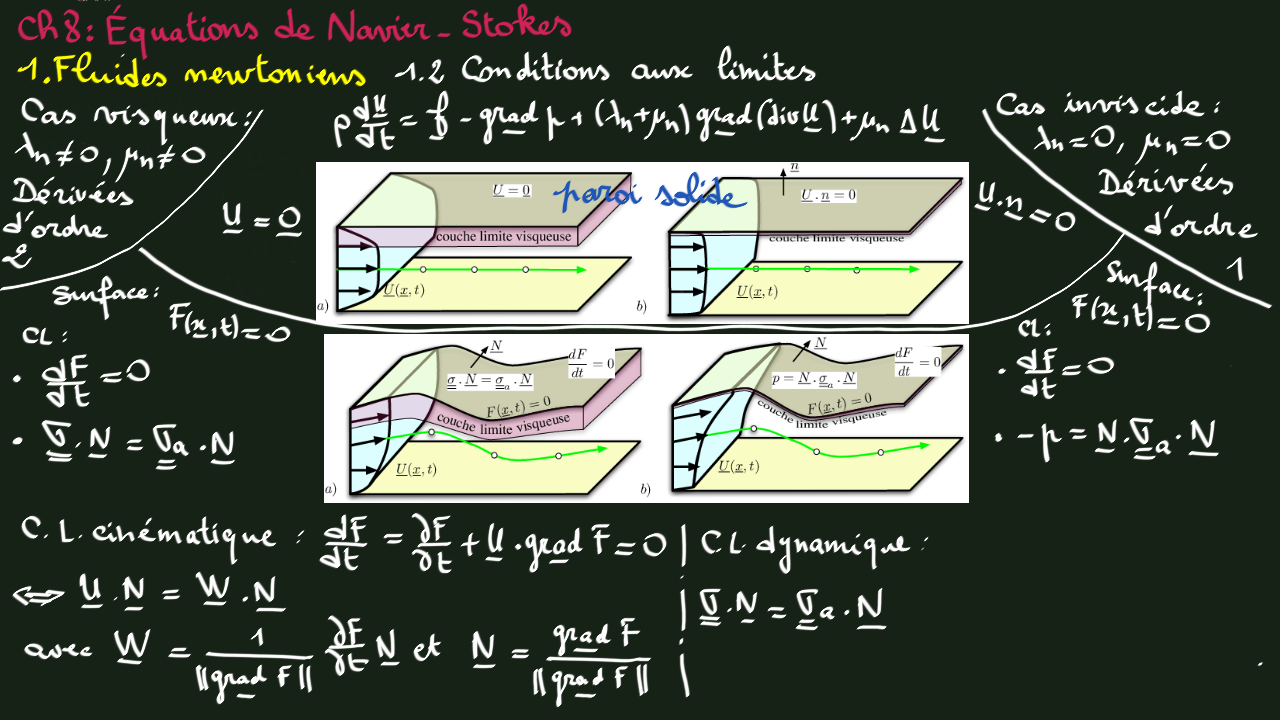 Ch 8: Équations de Navier-Stokes
1. Fluides newtoniens 1.2 Conditions aux limites
Cas visqueux :
λₙ≠0, μₙ≠0
Dérivées
d'ordre
2
U̲ = 0̲
ρ dU̲/dt = f̲ - g̲r̲a̲d̲ p + (λₙ+μₙ) g̲r̲a̲d̲ (div U̲) + μₙ Δ U̲
Cas inviscide :
λₙ=0, μₙ=0
Dérivées
d'ordre
1
U̲.n̲ = 0
paroi solide
U̲ = 0
couche limite visqueuse
U̲(x̲,t)
a)
n̲
U̲ . n̲ = 0
couche limite visqueuse
U̲(x̲,t)
b)
Surface :
F(x̲,t) = 0
CL :
• dF/dt = 0
• σ̳ . N̲ = σ̳a . N̲
N̲
dF/dt = 0
σ̳ . N̲ = σ̳a . N̲
F(x̲,t) = 0
couche limite visqueuse
U̲(x̲,t)
a)
N̲
dF/dt = 0
p = N̲ . σ̳a . N̲
F(x̲,t) = 0
couche limite visqueuse
U̲(x̲,t)
b)
Surface :
F(x̲,t) = 0
CL :
• dF/dt = 0
• -p = N̲ . σ̳a . N̲
C.L. cinématique : dF/dt = ∂F/∂t + U̲ . g̲r̲a̲d̲ F = 0
⟺ U̲ . N̲ = W̲ . N̲
avec W̲ = 1/||g̲r̲a̲d̲ F|| ∂F/∂t N̲ et N̲ = g̲r̲a̲d̲ F/||g̲r̲a̲d̲ F||
C.L. dynamique :
σ̳ . N̲ = σ̳a . N̲